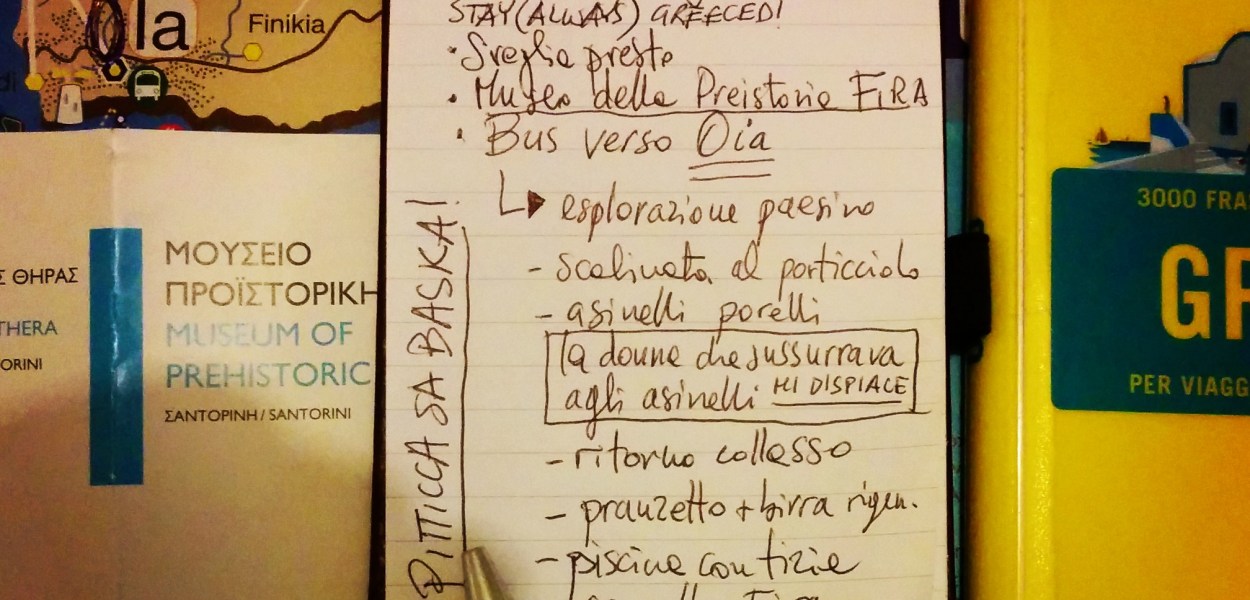 Oia
Finikia
Σ ΘΗΡΑΣ
THERA
ORINI
ΜΟΥΣΕΙΟ
ΠΡΟΪΣΤΟΡΙΚΗ
MUSEUM OF
PREHISTORIC
ΣΑΝΤΟΡΙΝΗ / SANTORINI
STAY (ALWAYS) GREECED!
• Sveglia presto
• Museo della Preistoria FIRA
• Bus verso Oia
esplorazione paesino
- scalinata al porticciolo
- asinelli porelli
la donna che sussurrava
agli asinelli MI DISPIACE
- ritorno collasso
- pranzetto + birra rigen.
- piscina con tizie
PITTICCA SA BASKA!
3000 FRA
GR
PER VIAGG